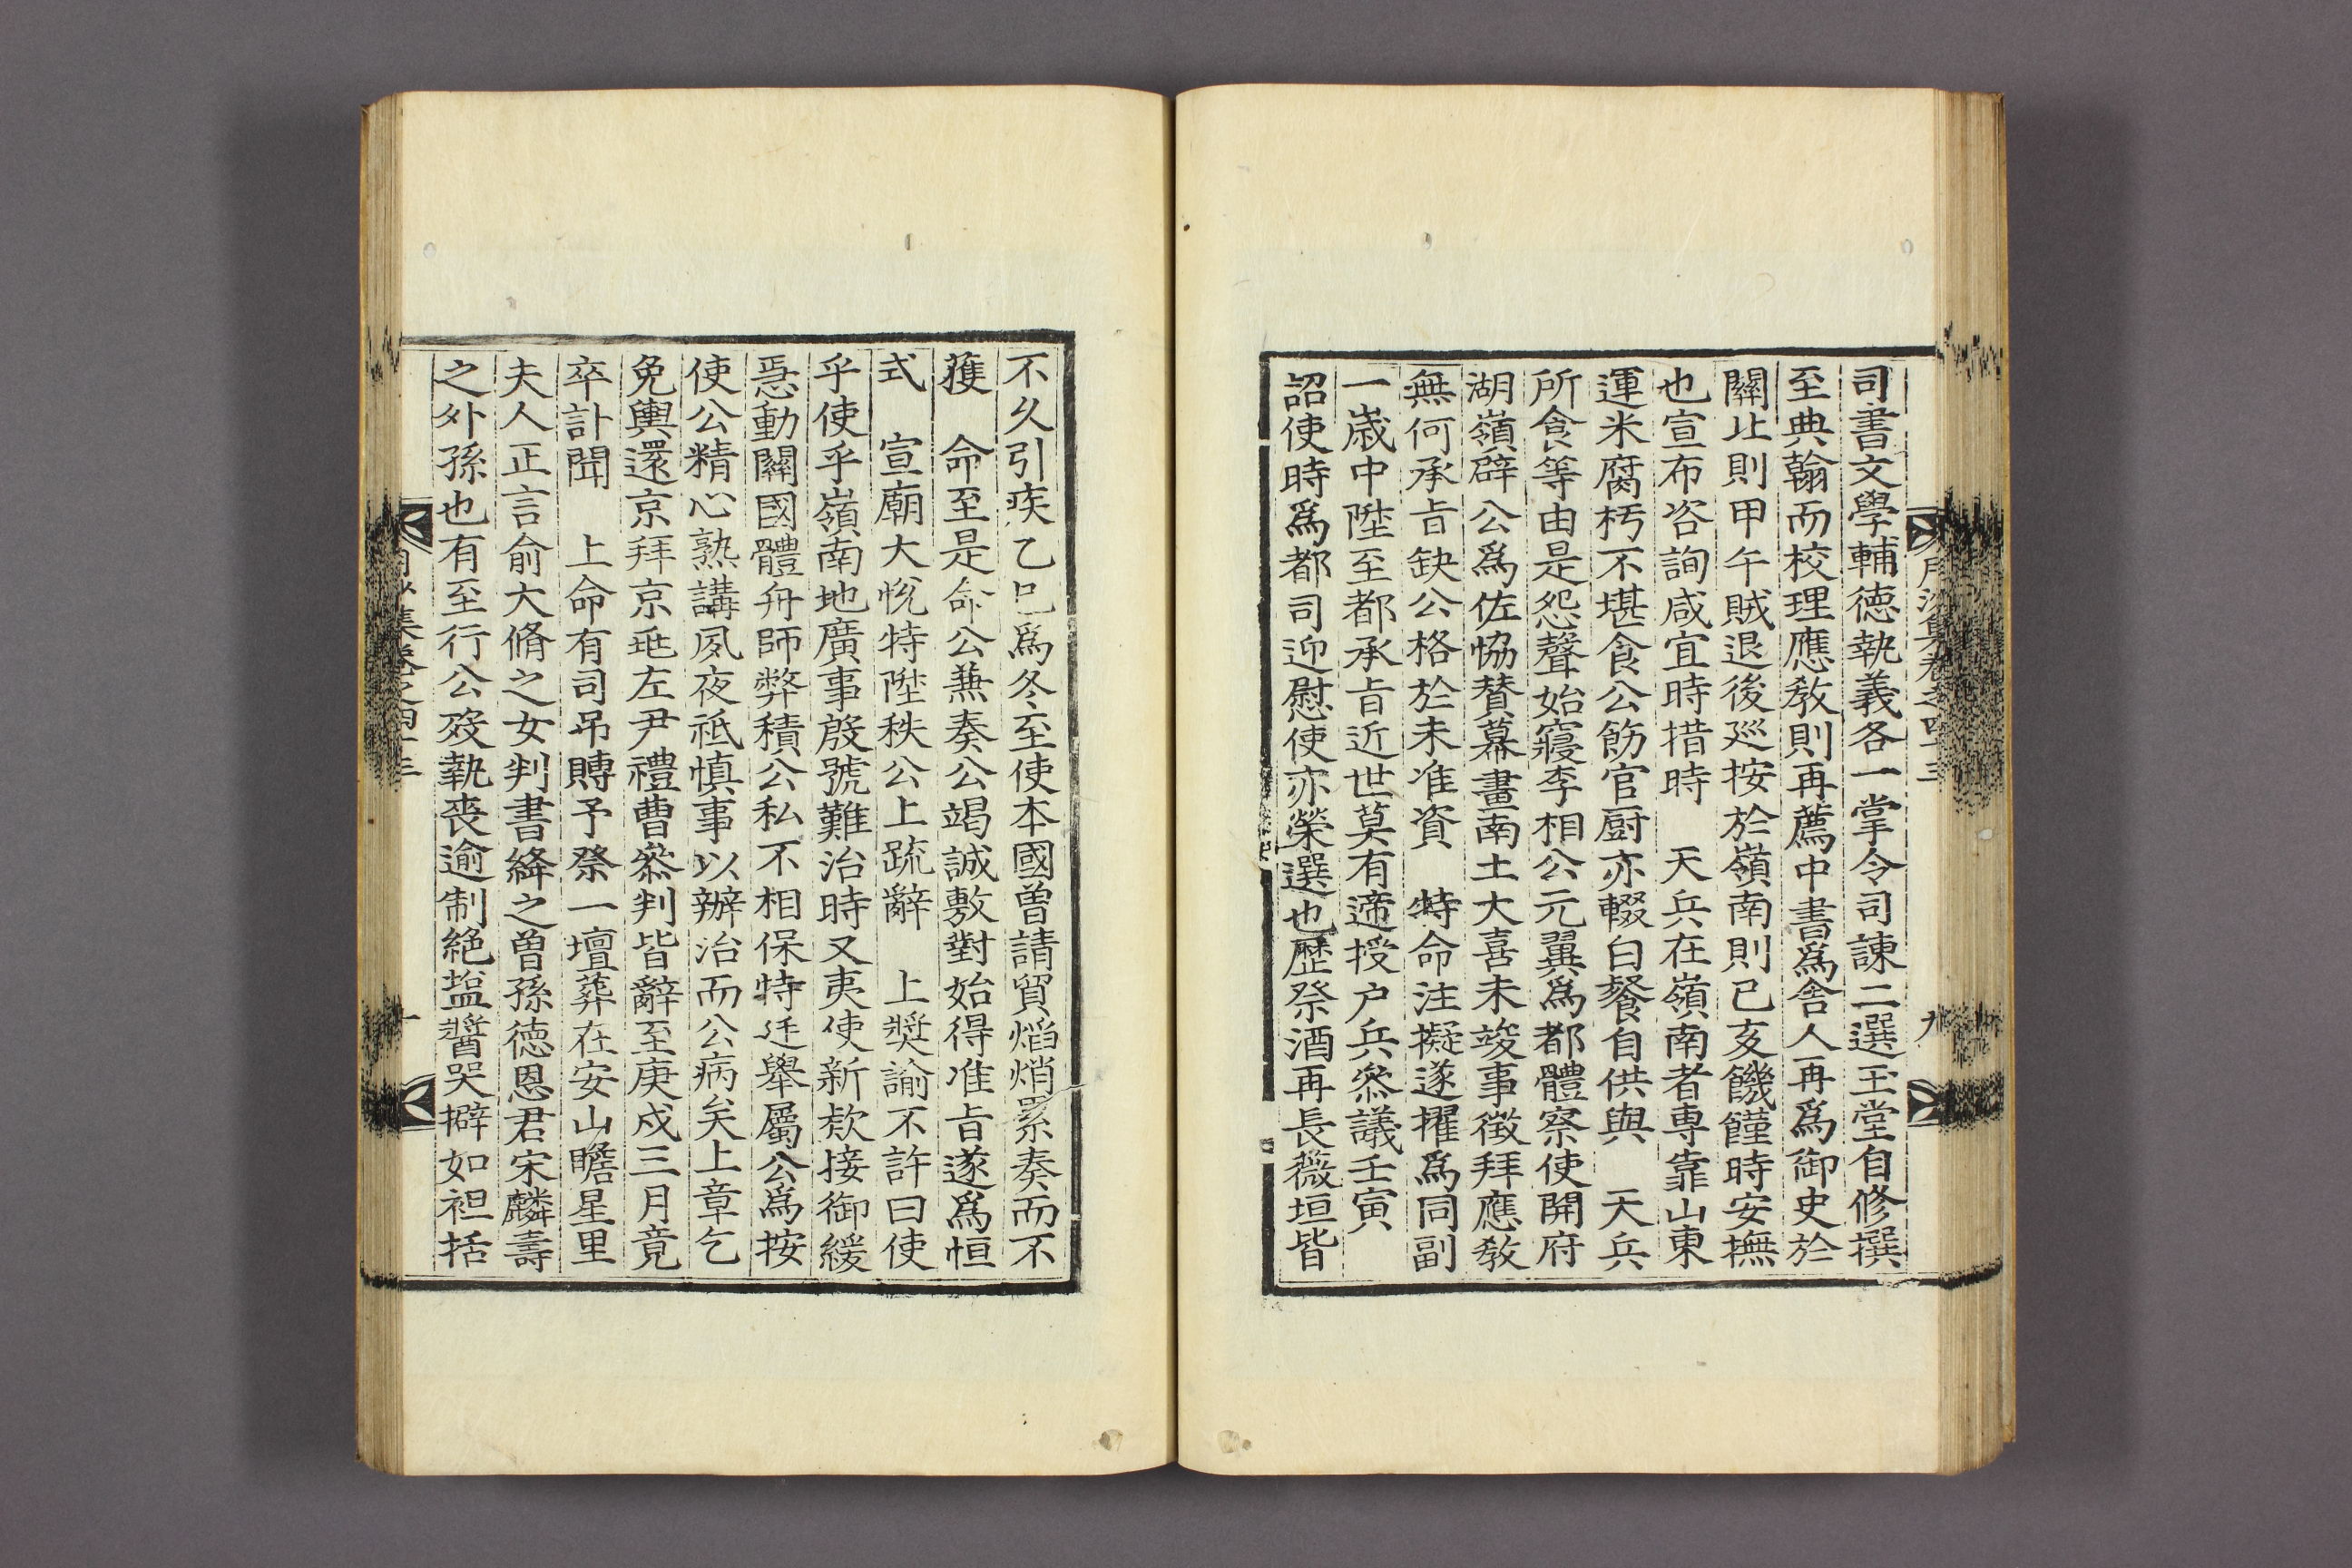 月沙集卷之四十三
九
司書文學輔德執義各一掌令司諫二選玉堂自修撰
至典翰而校理應敎則再薦中書爲舍人再爲御史於
關北則甲午賊退後廵按於嶺南則己亥饑饉時安撫
也宣布咨詢咸宜時措時　天兵在嶺南者專靠山東
運米腐朽不堪食公飭官厨亦輟白餐自供與　天兵
所食等由是怨聲始寢李相公元翼爲都體察使開府
湖嶺辟公爲佐恊賛幕畫南土大喜未竣事徴拜應敎
無何承旨缺公格於未准資　特命注擬遂擢爲同副
一歳中陞至都承旨近世莫有遆授户兵叅議壬寅
詔使時爲都司迎慰使亦榮選也歷祭酒再長薇垣皆
不久引疾乙巳爲冬至使本國曽請貿熖焇累奏而不
獲　命至是命公兼奏公竭誠敷對始得准旨遂爲恒
式　宣廟大悅特陞秩公上䟽辭　上奬諭不許曰使
乎使乎嶺南地廣事殷號難治時又夷使新欵接御緩
急動關國體舟師弊積公私不相保特廷舉屬公爲按
使公精心熟講夙夜祗愼事以辦治而公病矣上章乞
免輿還京拜京兆左尹禮曹叅判皆辭至庚戍三月竟
卒訃聞　上命有司吊賻予祭一壇葬在安山瞻星里
夫人正言俞大脩之女判書絳之曽孫德恩君宋麟壽
之外孫也有至行公歿執喪逾制絶塩醬哭擗如袒括
月沙集卷之四十三
十